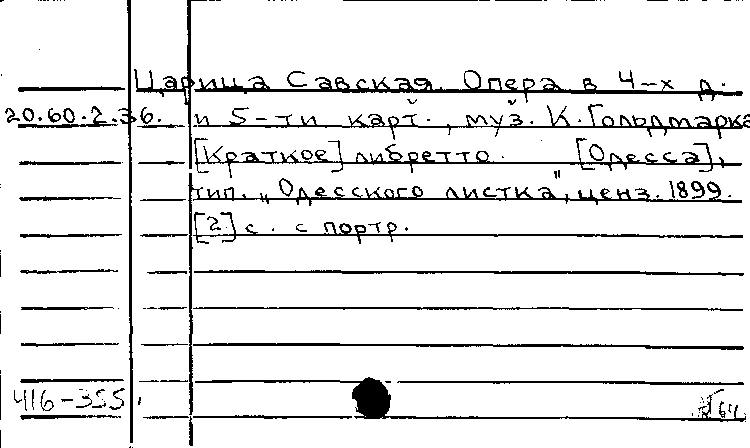 Царица Савская. Опера в 4-х д.
20.60.2.36. и 5-ти карт., муз. К. Гольдмарка
[Краткое] либретто. [Одесса],
тип. „Одесского листка", ценз. 1899.
[2] с. с портр.
416-355
64